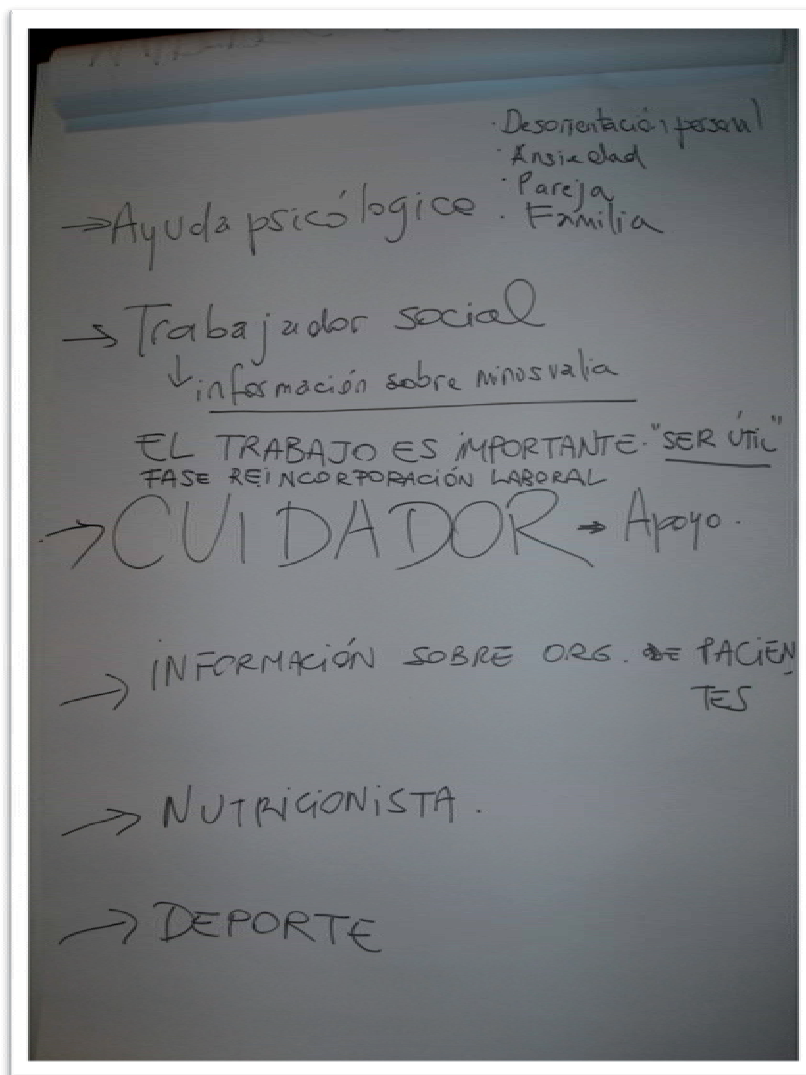 · Desorientación personal
· Ansiedad
· Pareja
→ Ayuda psicólogica · Familia
→ Trabajador social
↓ información sobre minusvalia
EL TRABAJO ES IMPORTANTE. "SER ÚTIL"
FASE REINCORPORACIÓN LABORAL
→ CUIDADOR → Apoyo.
→ INFORMACIÓN SOBRE ORG. DE PACIEN
TES
→ NUTRICIONISTA.
→ DEPORTE